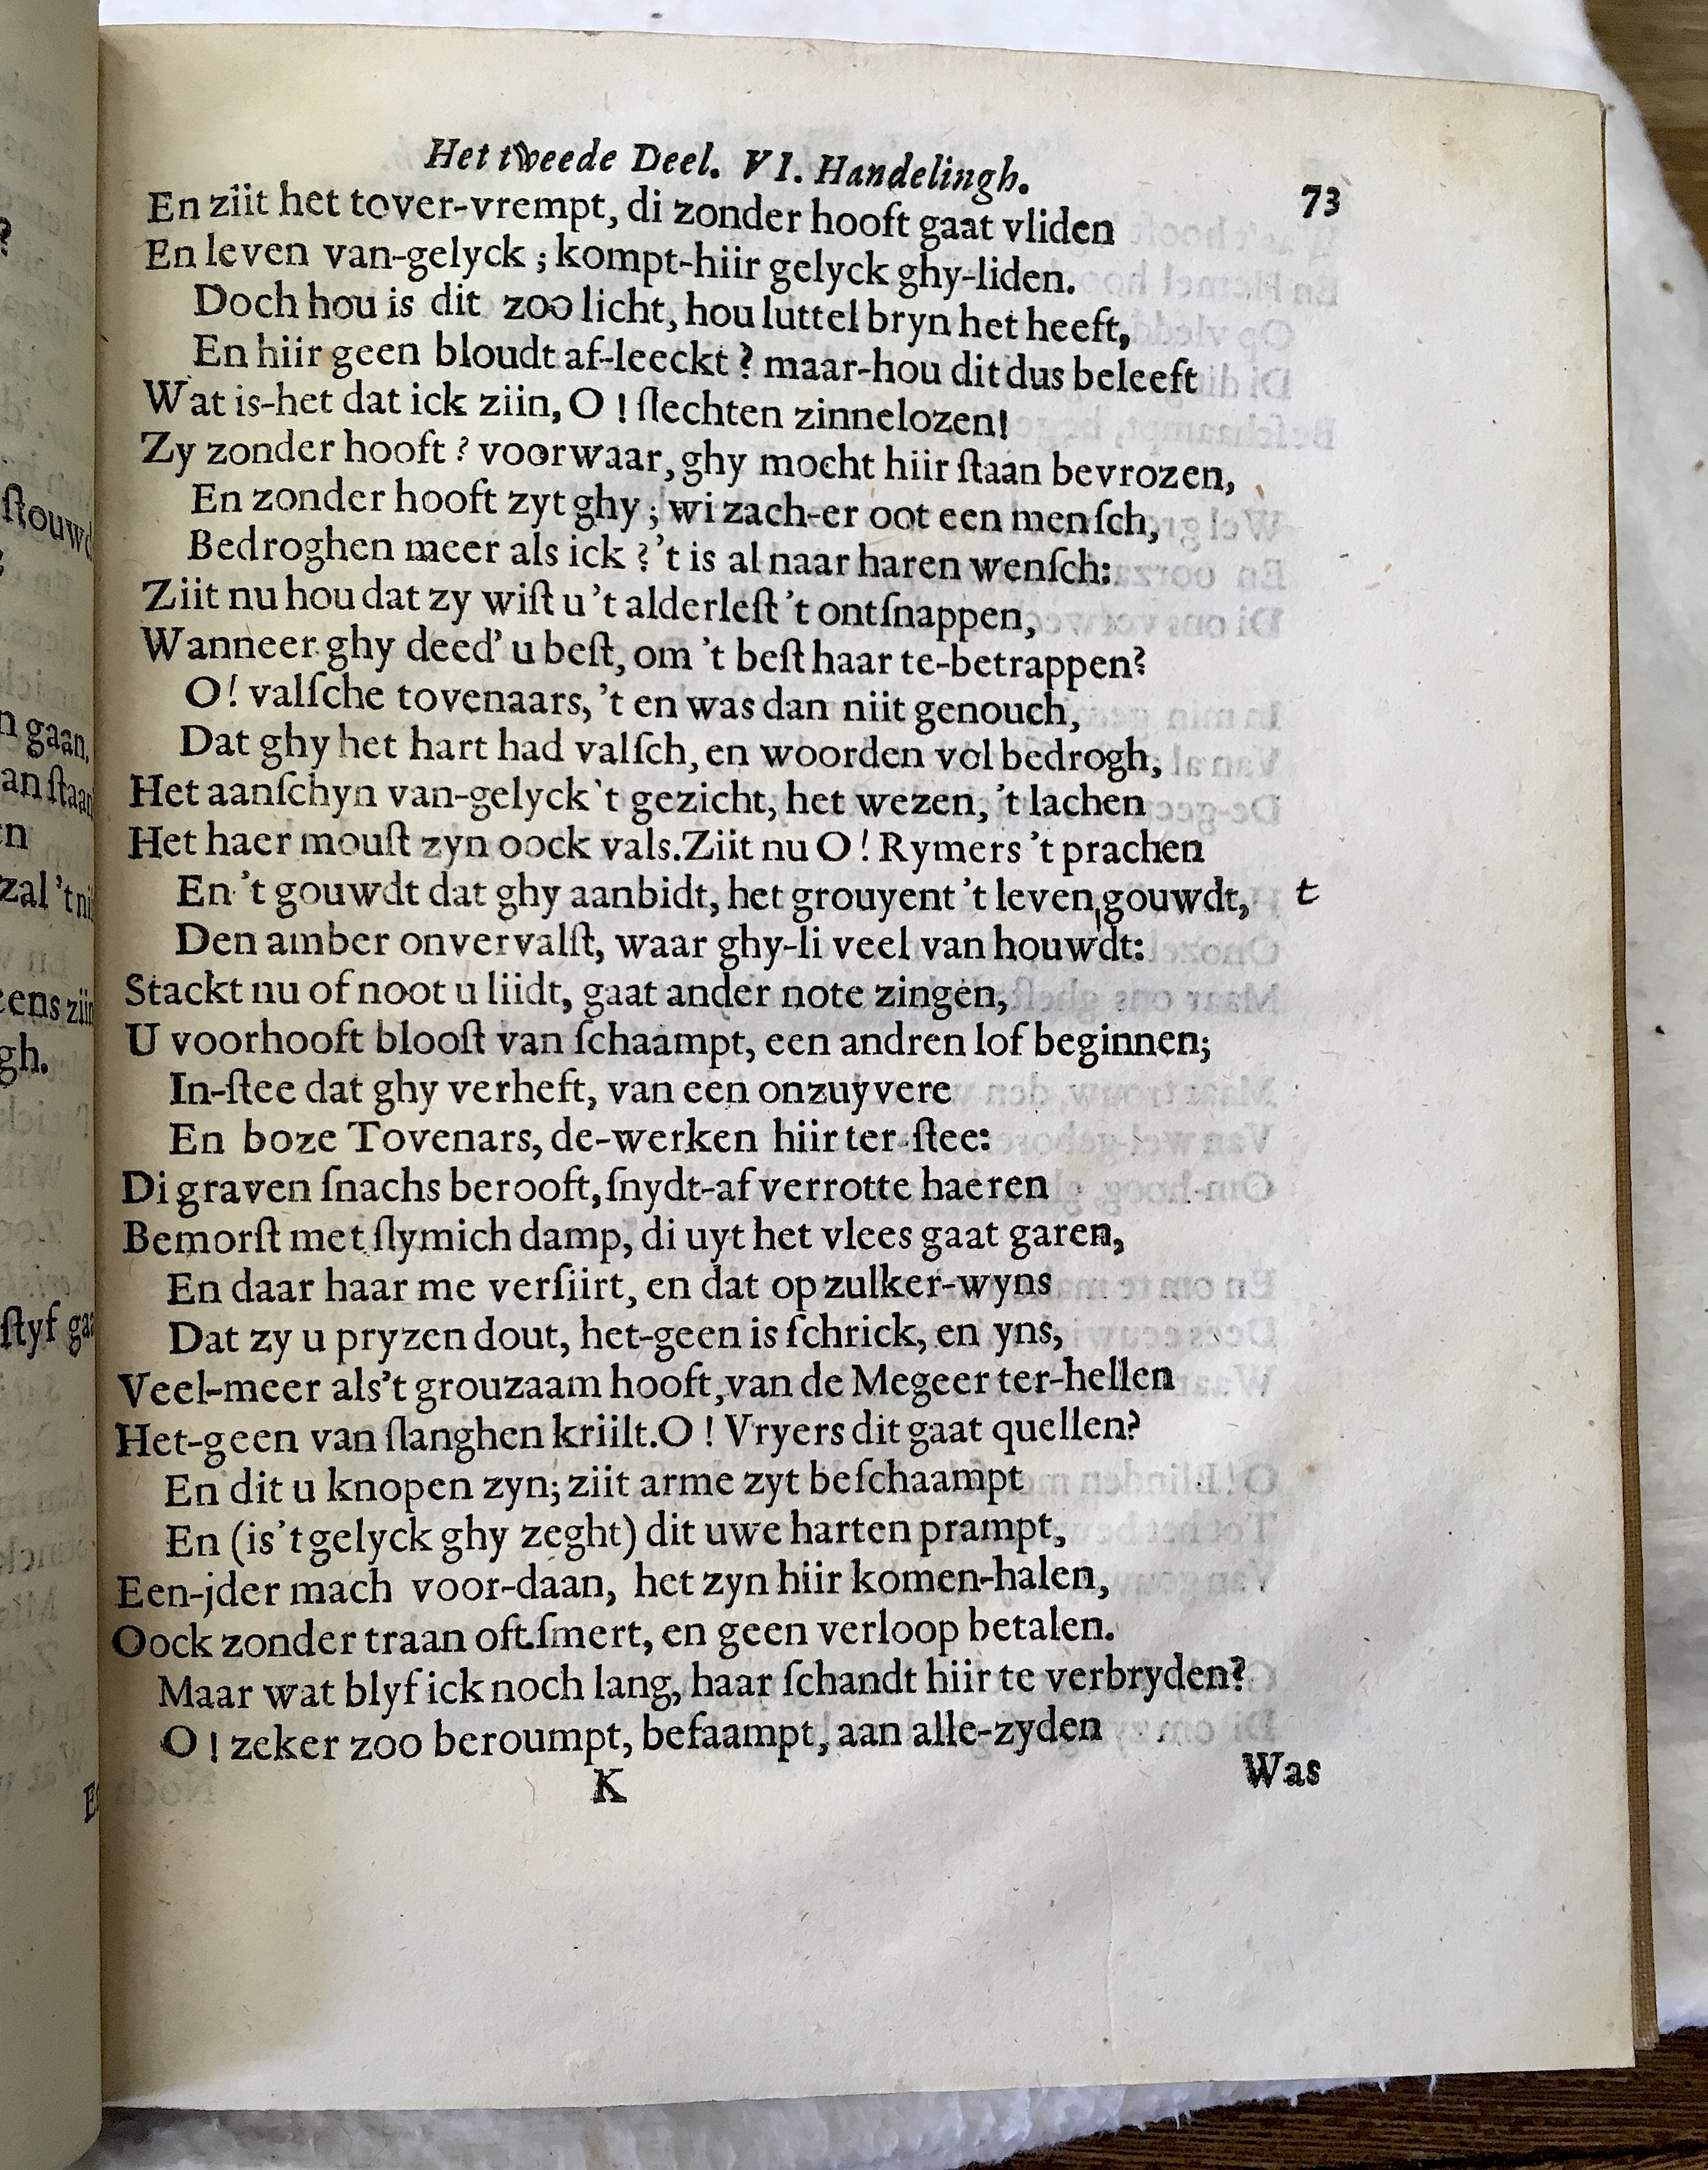 Het tweede Deel. VI. Handelingh. 73
En ziit het tover-vrempt, di zonder hooft gaat vliden
En leven van-gelyck ; kompt-hiir gelyck ghy-liden.
Doch hou is dit zoo licht, hou luttel bryn het heeft,
En hiir geen bloudt af-leeckt ? maar-hou dit dus beleeft
Wat is-het dat ick ziin, O ! ſlechten zinnelozen!
Zy zonder hooft ? voorwaar, ghy mocht hiir ſtaan bevrozen,
En zonder hooft zyt ghy ; wi zach-er oot een menſch,
Bedroghen meer als ick ? 't is al naar haren wenſch:
Ziit nu hou dat zy wiſt u 't alderleſt 't ontſnappen,
Wanneer ghy deed' u beſt, om 't beſt haar te-betrappen?
O! valſche tovenaars, 't en was dan niit genouch,
Dat ghy het hart had valſch, en woorden vol bedrogh,
Het aanſchyn van-gelyck 't gezicht, het wezen, 't lachen
Het haer mouſt zyn oock vals. Ziit nu O ! Rymers 't prachen
En 't gouwdt dat ghy aanbidt, het grouyent 't leven gouwdt, t
Den amber onvervalſt, waar ghy-li veel van houwdt:
Stackt nu of noot u liidt, gaat ander note zingen,
U voorhooft blooſt van ſchaampt, een andren lof beginnen;
In-ſtee dat ghy verheft, van een onzuyvere
En boze Tovenars, de-werken hiir ter-ſtee:
Di graven ſnachs berooft, ſnydt-af verrotte haeren
Bemorſt met ſlymich damp, di uyt het vlees gaat garen,
En daar haar me verſiirt, en dat op zulker-wyns
Dat zy u pryzen dout, het-geen is ſchrick, en yns,
Veel-meer als't grouzaam hooft, van de Megeer ter-hellen
Het-geen van ſlanghen kriilt. O ! Vryers dit gaat quellen?
En dit u knopen zyn; ziit arme zyt beſchaampt
En (is't gelyck ghy zeght) dit uwe harten prampt,
Een-jder mach voor-daan, het zyn hiir komen-halen,
Oock zonder traan oft ſmert, en geen verloop betalen.
Maar wat blyf ick noch lang, haar ſchandt hiir te verbryden?
O ! zeker zoo beroumpt, befaampt, aan alle-zyden
K Was